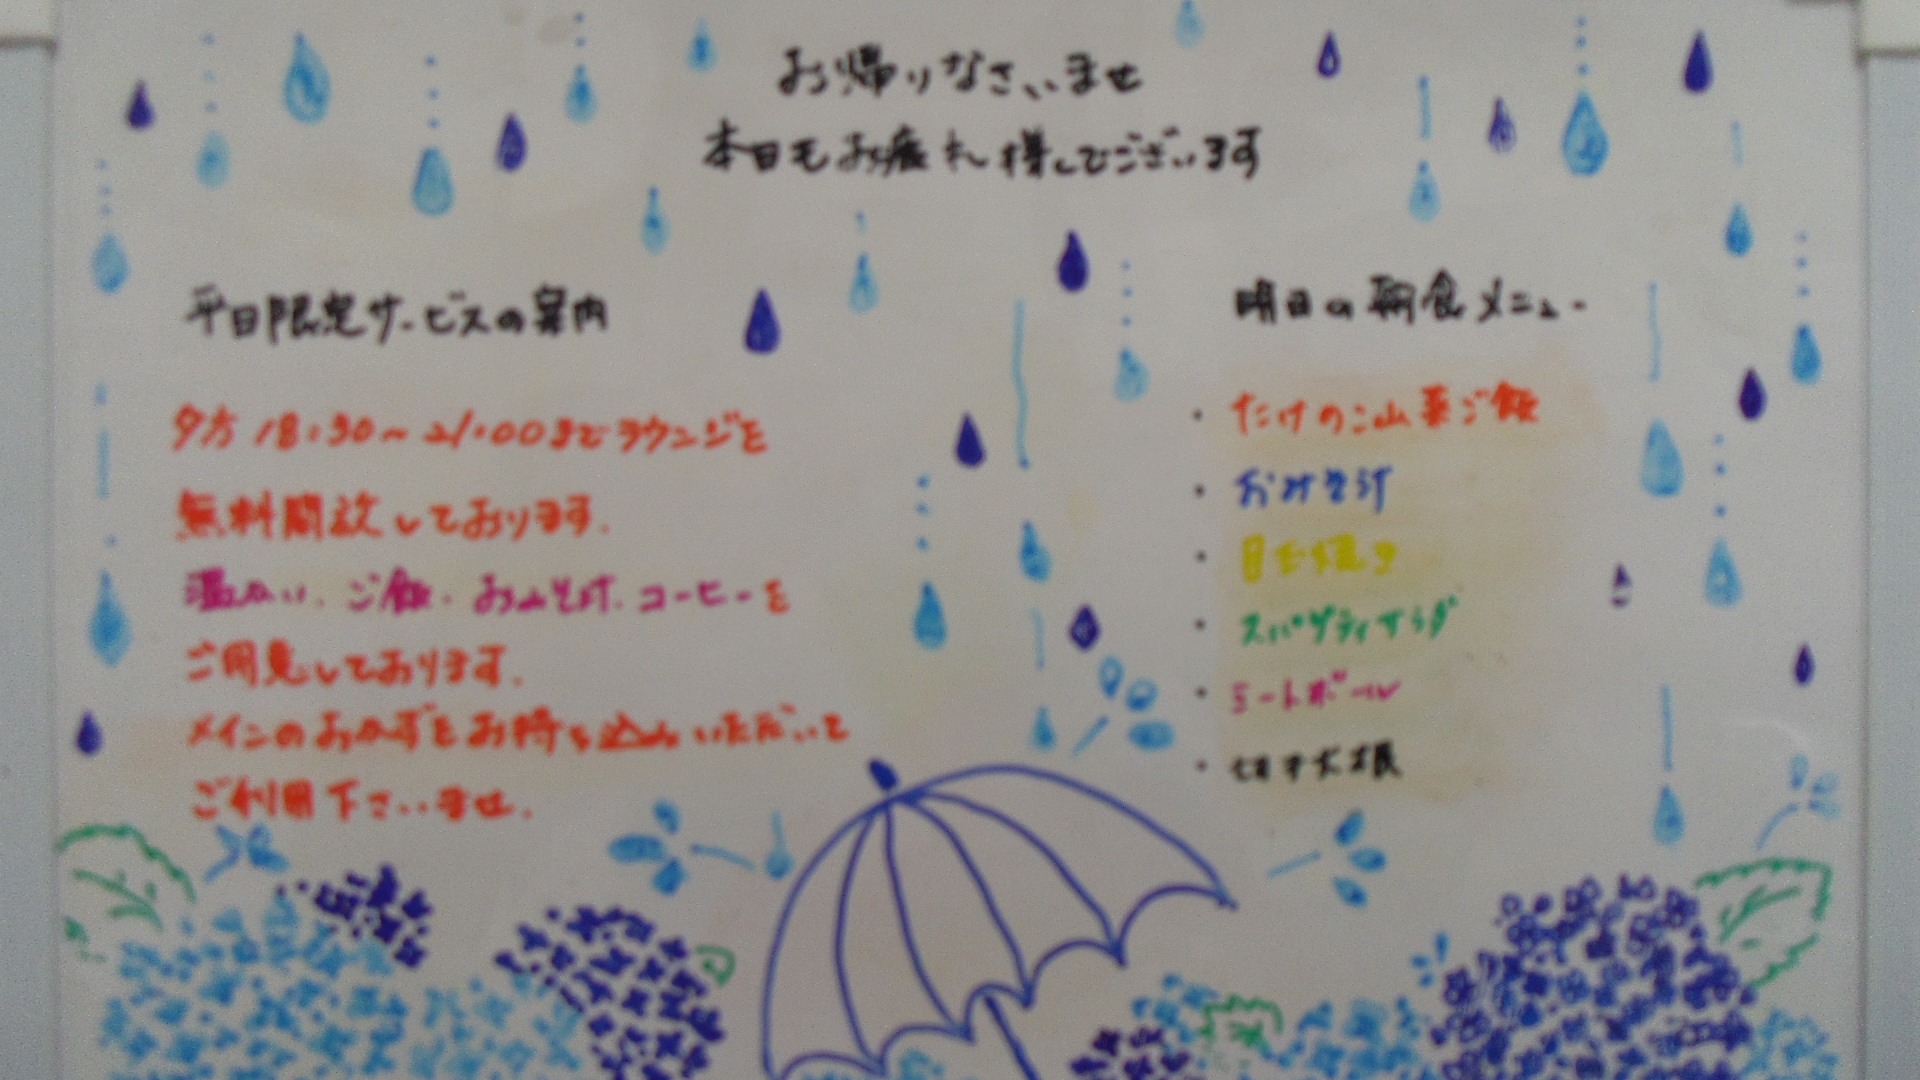 お帰りなさいませ
本日もお疲れ様でございます
平日限定サービスの案内
夕方18:30〜21:00までラウンジを
無料開放しております.
温かい、ご飯・おみそ汁、コーヒーを
ご用意しております.
メインのおかずをお持ち込みいただいて
ご利用下さいませ.
明日の朝食メニュー
・たけのこ山菜ご飯
・おみそ汁
・目玉焼き
・スパゲティサラダ
・ミートボール
・切干大根